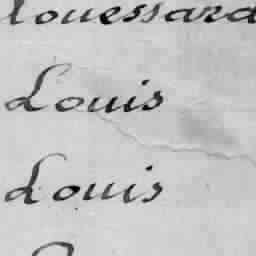 Louessard
Louis
Louis